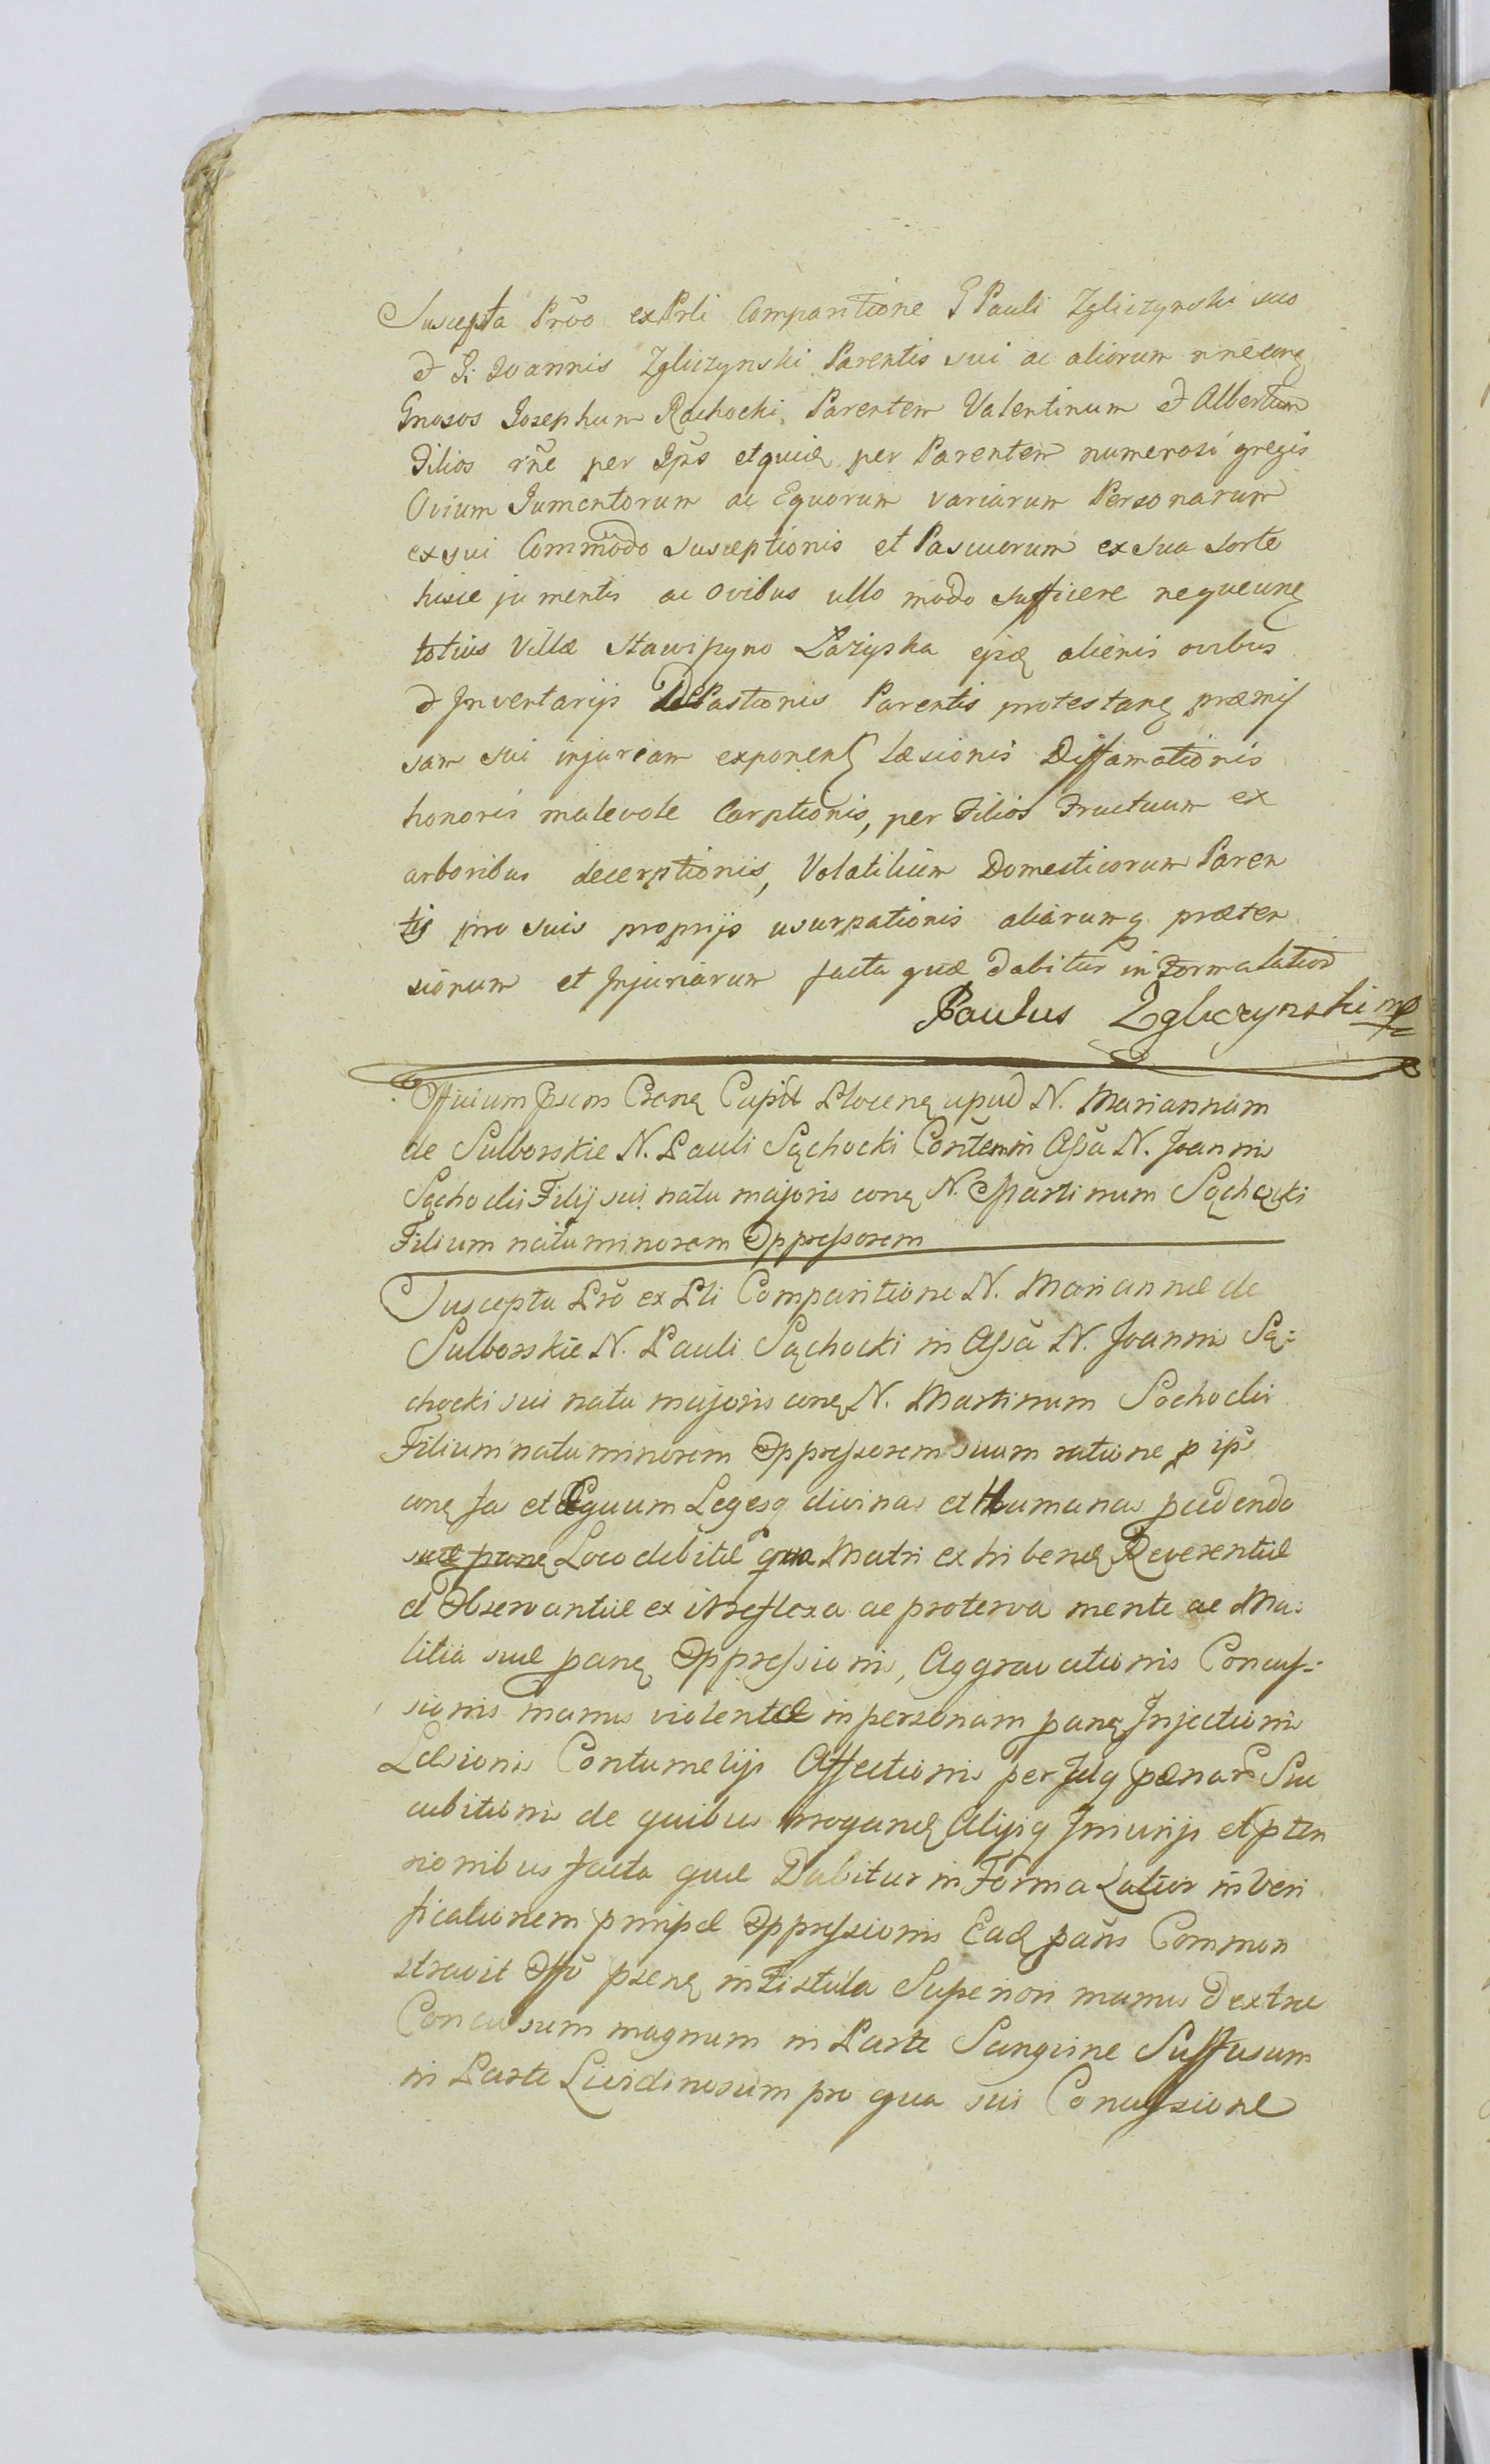 Suscepta Prõo ex Prli Comparitione G Pauli Zgliczynski suo
et G: Joannis Zgliczynski Parentis sui ac aliorum nne conę
Gnosos Josephum Rachocki Parentem Valentinum et Albertum
Filios rñe per Ipš et quidę per Parentem numerosi gregis
Ovium Jumentorum ac Equorum variarum Personarum
ex sui Commodo susceptionis et Pascuorum ex sua sorte
hisce jumentis ac ovibus ullo modo sufficere nequeunę
totius Villæ Stawipyno Łazyska alienis ovibus
et Inventarijs DePastionis Parentis protestanę præmis
sam sui injuriam exponenę læsionis Diffamationis
honoris malevole Carptionis, per Filios Fructuum ex
arboribus decerptionis, Volatilium Domesticorum Paren
tis pro suis proprijs usurpationis aliarumq præten
sionum et Injuriarum facta quæ dabitur in Forma latior
Paulus Zgliczynski mp
Officium Psens Crane Capit Plocenę apud N. Mariannam
de Sulborskie N. Pauli Sąchocki Cončtem in Assa N. Joannis
Sąchocki Filij sui natu majoris conę N. Martinum Sąchocki
Filium natu minorem Oppressorem
Suscepta Prõ ex Pli Comparitione N. Mariannæ de
Sulborskie N. Pauli Sąchocki in Assa N. Joannis Są:
chocki sui natu majoris conę N. Martinum Sochocki
Filium natu minorem Oppressorem suum ratione p ipš
conę Ja et Æquum Legesq divinas et Humanas pædendo
suæ panę Loco debitæ qua Matri exhibenę Reverentiæ
et Observantiæ ex irreflexa ac proterva mente ac Ma:
litia suæ panę Oppressionis, Aggravationis Concus:
sionis manus violentæ in personam panę Injectionis
Læsionis Contumelijs Affectionis per Julq pænars Suc
cubitionis de quibus Irroganę Alijsq Injurijs et pten
sionibus facta quæ Dabitur in Forma Latior in Veri
ficationem pmipæ Oppressionis Eadę pañs Commom
stravit Offõ psenę in Fistula Superiori manus dextræ
Concussum magnum in Parte Sanguine Suffusum
in Parte Lividinosum pro qua sui Concussione